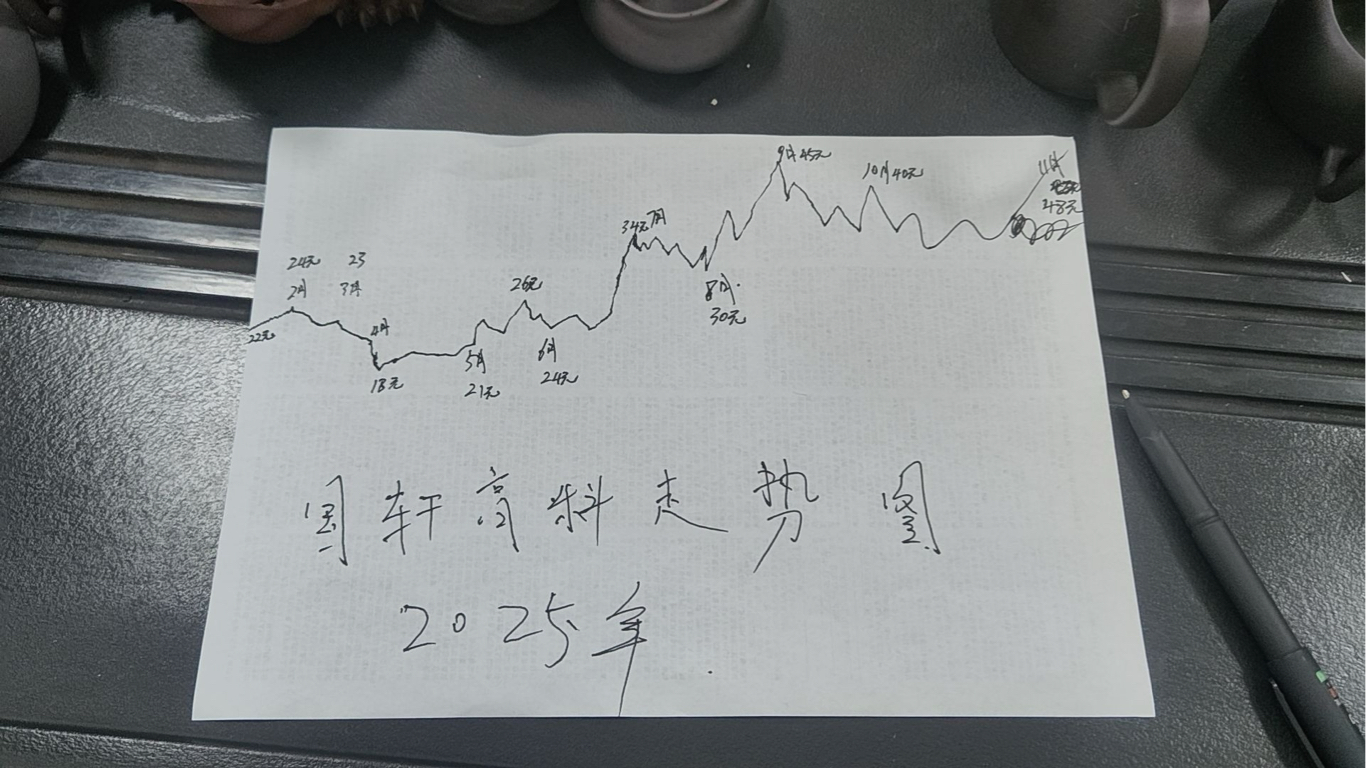 9月45元
10月40元
11月
48元
34元 7月
24元 23
2月 3月
26元
8月
30元
22元
4月
18元
5月
21元
6月
24元
国轩高科走势图
2025年